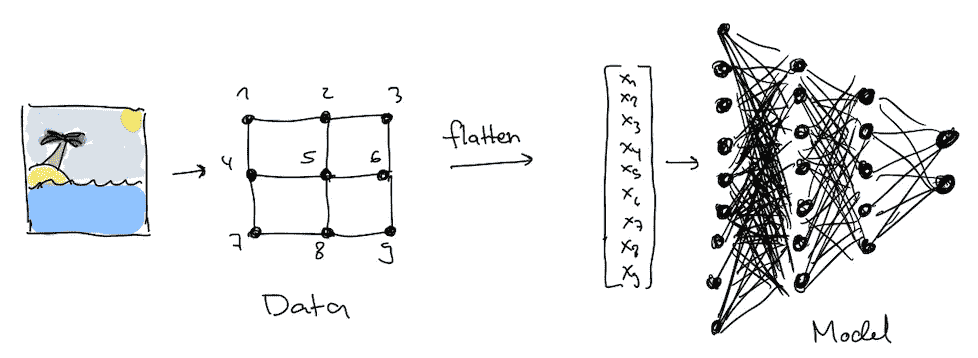 1 2 3
4 5 6
7 8 9
Data
flatten
x1
x2
x3
x4
x5
x6
x7
x8
x9
Model